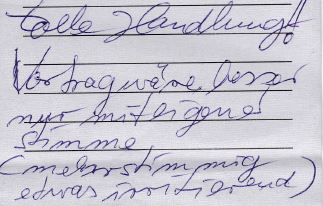 tolle Handlung!
Vortrag wäre besser
nur mit eigener
Stimme
(mehrstimmig
etwas irritierend)